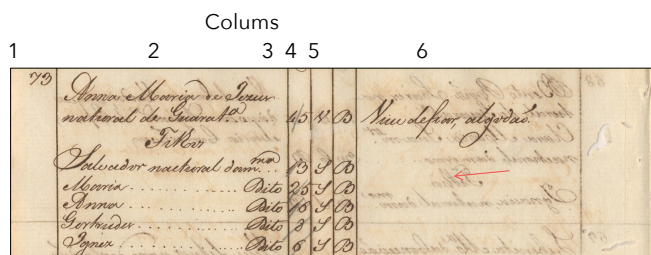 Colums
1 2 3 4 5 6
73
Anna Maria de Jezus
natural de Guarat.ª 45 V B Vive de fiar, algodaõ.
Filhos
Salvador natural da m.ma 13 S B
Maria Dito 25 S B
Anna Dito S B
Gertrudes Dito 8 S B
Ignez Dito 6 S B